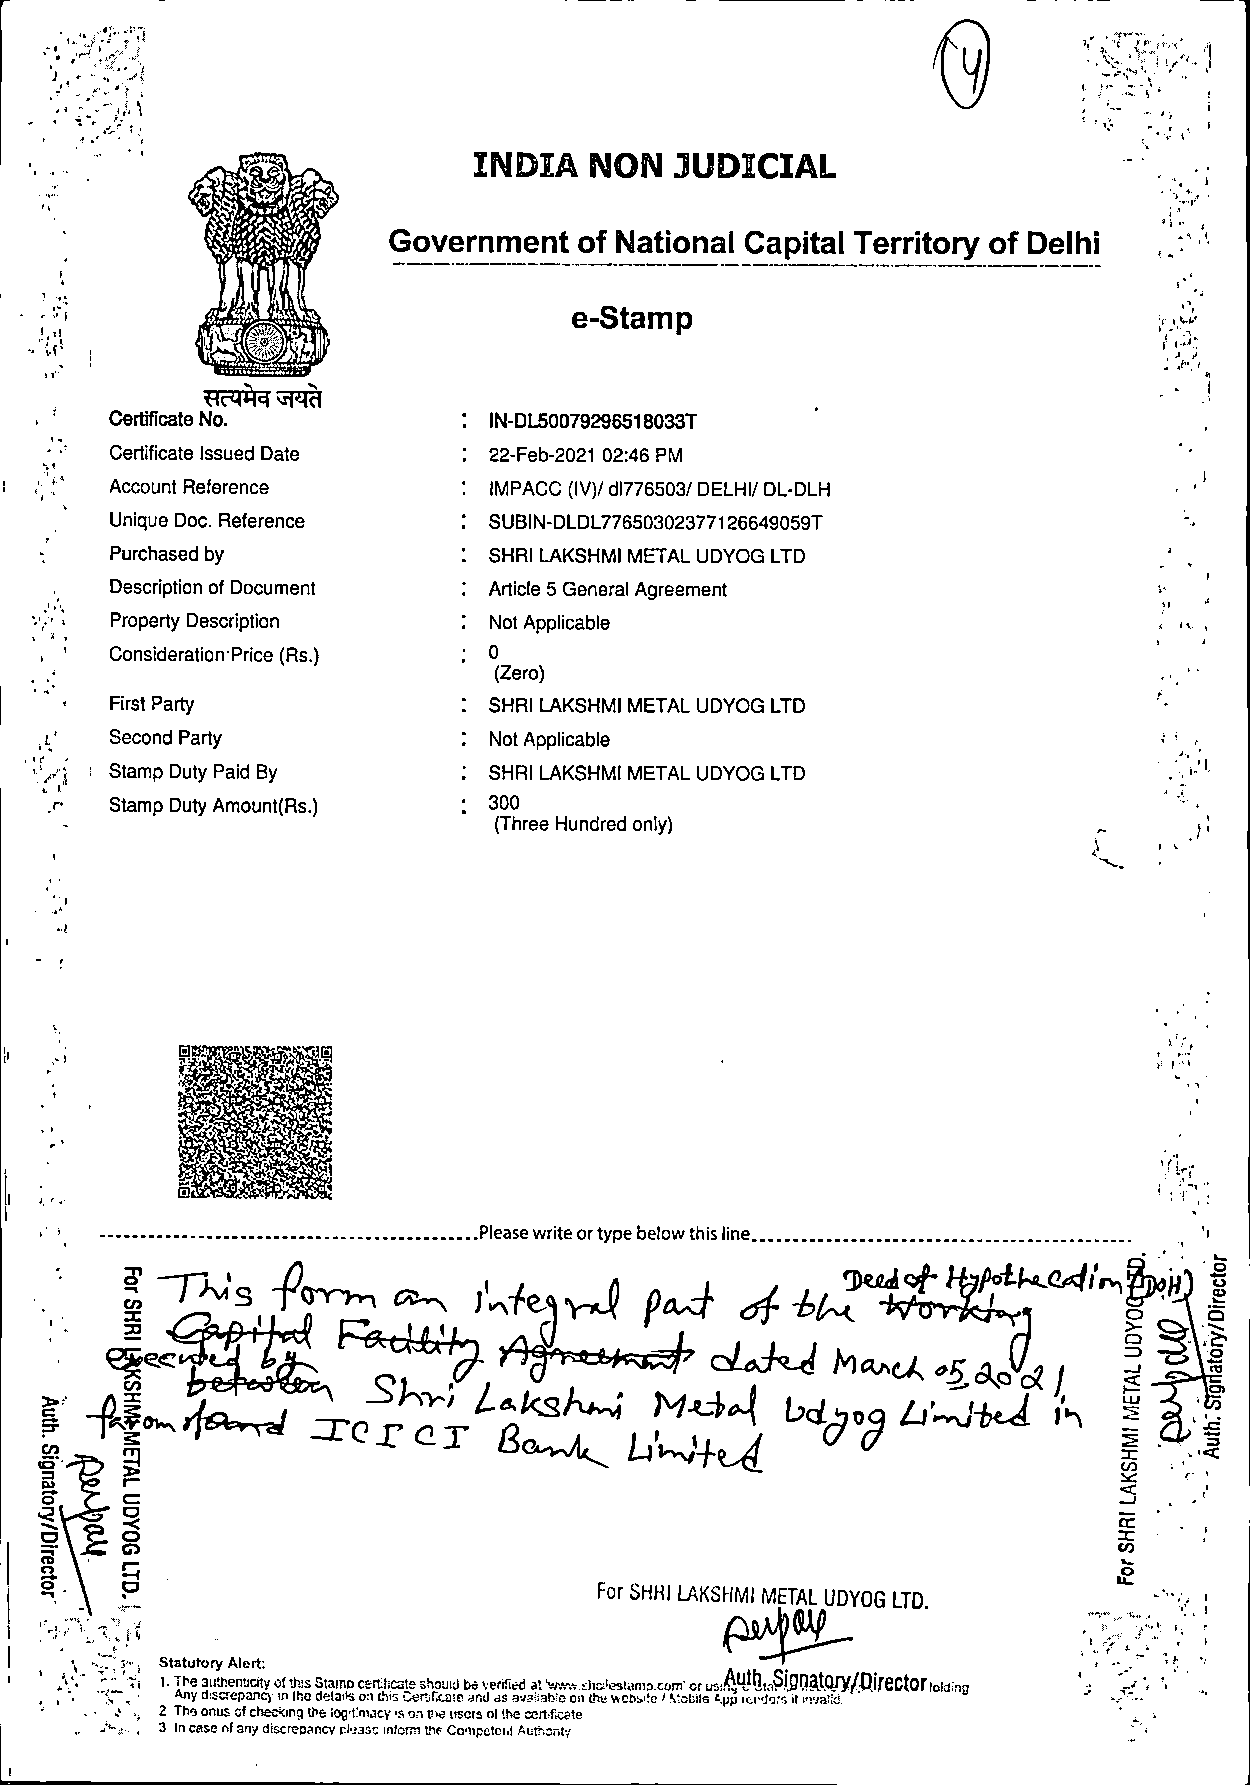 4
INDIA NON JUDICIAL
Government of National Capital Territory of Delhi
e-Stamp
सत्यमेव जयते
Certificate No. : IN-DL50079296518033T
Certificate Issued Date : 22-Feb-2021 02:46 PM
Account Reference : IMPACC (IV)/ dl776503/ DELHI/ DL-DLH
Unique Doc. Reference : SUBIN-DLDL77650302377126649059T
Purchased by : SHRI LAKSHMI METAL UDYOG LTD
Description of Document : Article 5 General Agreement
Property Description : Not Applicable
Consideration Price (Rs.) : 0
(Zero)
First Party : SHRI LAKSHMI METAL UDYOG LTD
Second Party : Not Applicable
Stamp Duty Paid By : SHRI LAKSHMI METAL UDYOG LTD
Stamp Duty Amount(Rs.) : 300
(Three Hundred only)
Please write or type below this line
Deed of Hypothecation (DOH)
This form an integral part of the Working
Capital Facility Agreement dated March 05, 2021
executed by
between Shri Lakshmi Metal Udyog Limited in
and ICICI Bank Limited
For SHRI LAKSHMI METAL UDYOG LTD.
Auth. Signatory/Director
For SHRI LAKSHMI METAL UDYOG LTD.
Auth. Signatory/Director
For SHRI LAKSHMI METAL UDYOG LTD.
Auth. Signatory/Director
Statutory Alert:
1. The authenticity of this Stamp certificate should be verified at 'www.shcilestamp.com' or using
Any discrepancy in the details on this Certificate and as available on the website / Mobile App renders it invalid.
2 The onus of checking the legitimacy is on the users of the certificate
3 In case of any discrepancy please inform the Competent Authority